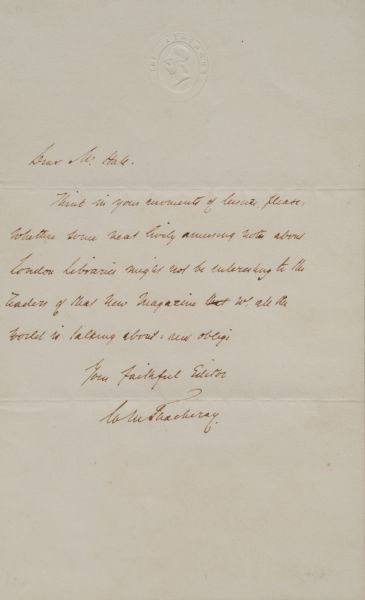 THE ATHENAEUM
Dear Mr. Hale.
Think in your moments of leisure, please,
Whether some neat lively amusing notes about
London Libraries might not be interesting to the
readers of that New Magazine wh. all the
World is talking about: now oblige
Your faithful Editor
W M Thackeray.